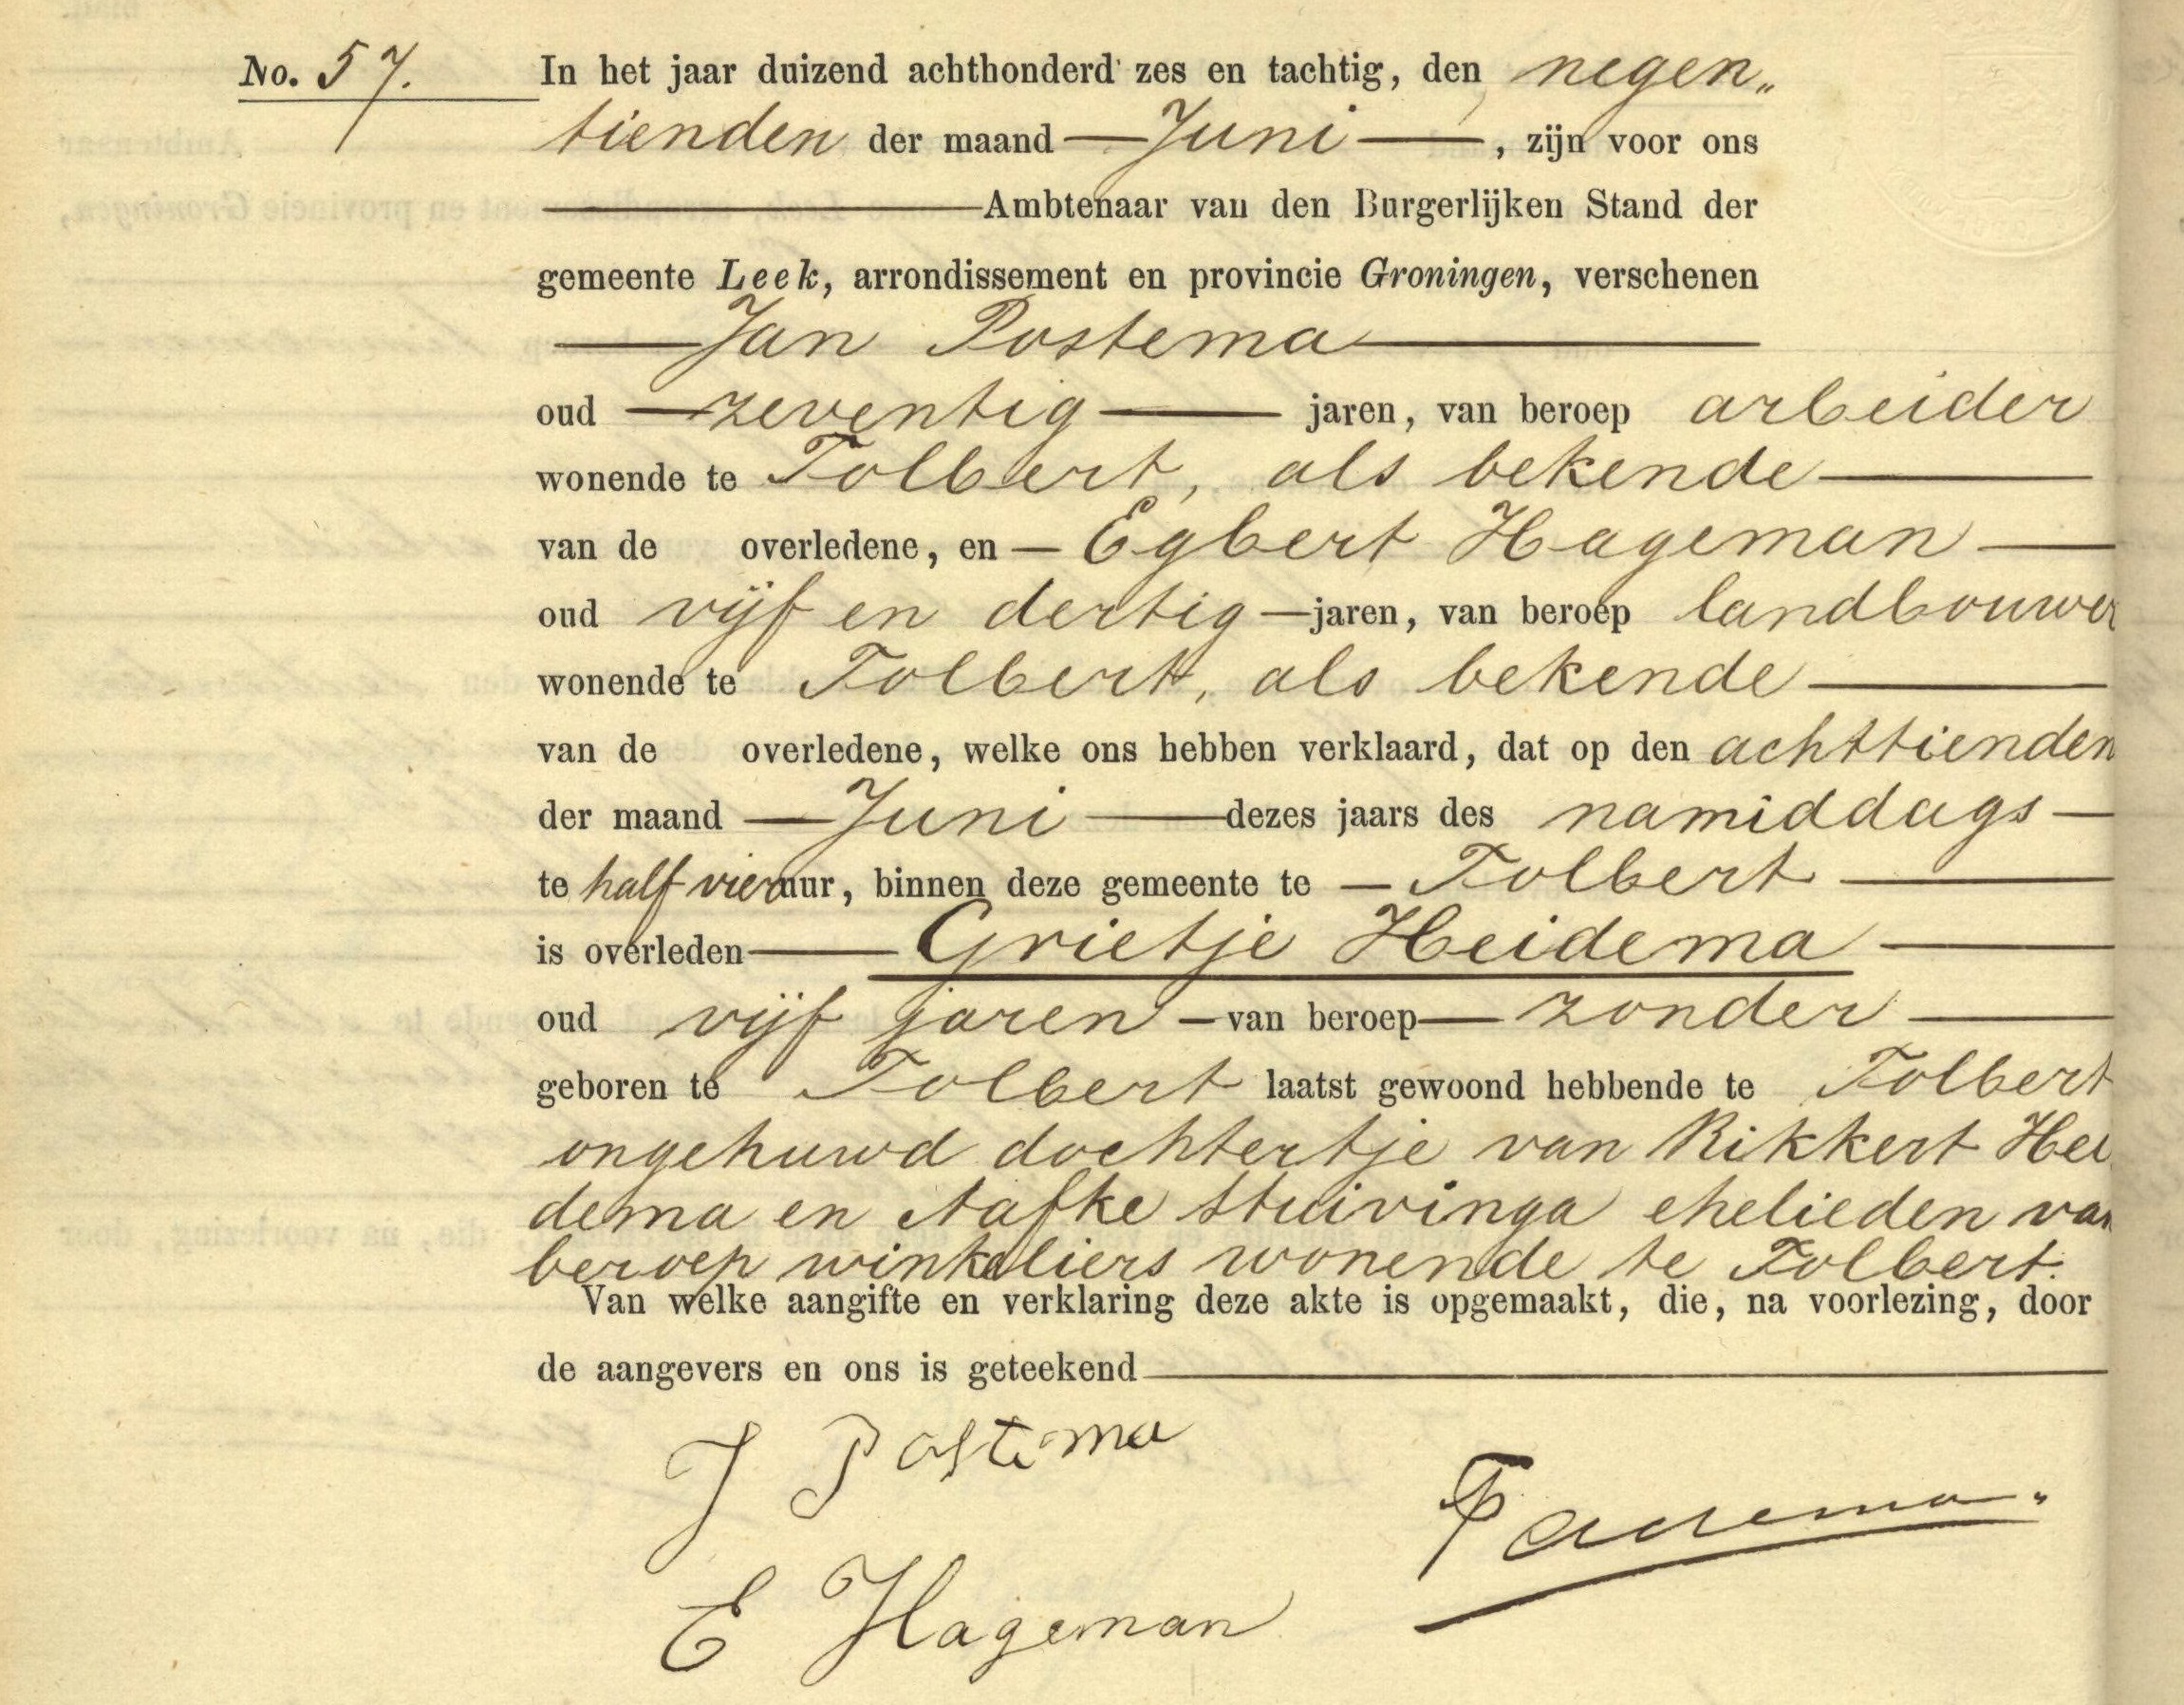 No. 57. In het jaar duizend achthonderd zes en tachtig, den negen„
tienden der maand — Juni —, zijn voor ons
Ambtenaar van den Burgerlijken Stand der
gemeente Leek, arrondissement en provincie Groningen, verschenen
— Jan Postema —
oud — zeventig — jaren, van beroep arbeider
wonende te Tolbert, als bekende —
van de overledene, en — Egbert Hageman —
oud vijf en dertig — jaren, van beroep landbouwer
wonende te Tolbert, als bekende —
van de overledene, welke ons hebben verklaard, dat op den achttienden
der maand — Juni — dezes jaars des namiddags —
te half vier uur, binnen deze gemeente te — Tolbert —
is overleden — Grietje Heidema —
oud vijf jaren — van beroep — zonder —
geboren te Tolbert laatst gewoond hebbende te Tolbert
ongehuwd dochtertje van Rikkert Hei
dema en Aafke Stuivinga ehelieden van
beroep winkeliers wonende te Tolbert.
Van welke aangifte en verklaring deze akte is opgemaakt, die, na voorlezing, door
de aangevers en ons is geteekend
J Postema
E Hageman